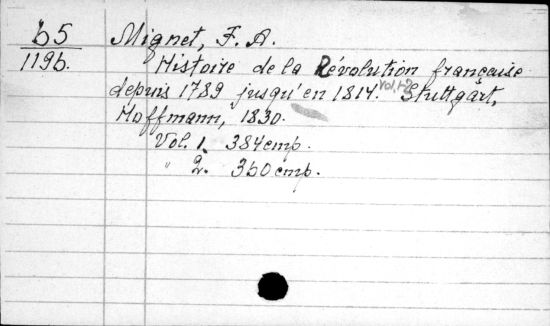 b5 Mignet, F. A.
119b. Histoire de la Révolution française
depuis 1789 jusqu'en 1814. Vol. 1-2 Stuttgart,
Hoffmann, 1830.
Vol. 1. 384 cmp.
" 2. 360 cmp.